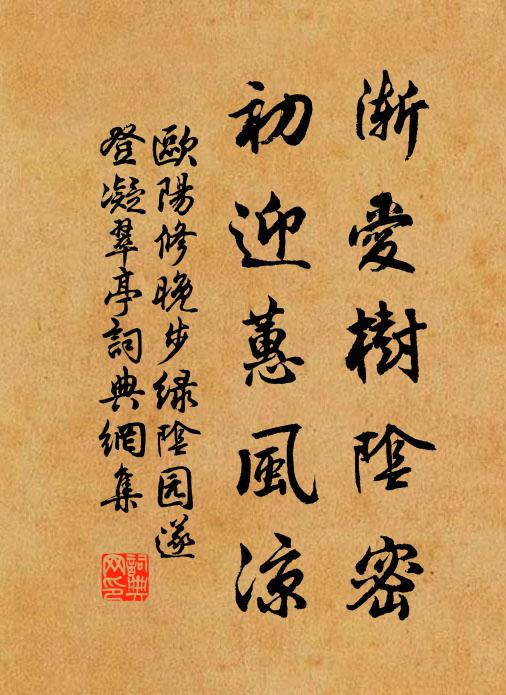 漸愛樹陰密
初迎蕙風涼
歐陽修晚步緑陰园遂
登凝翠亭詞典網集
詞典
网印